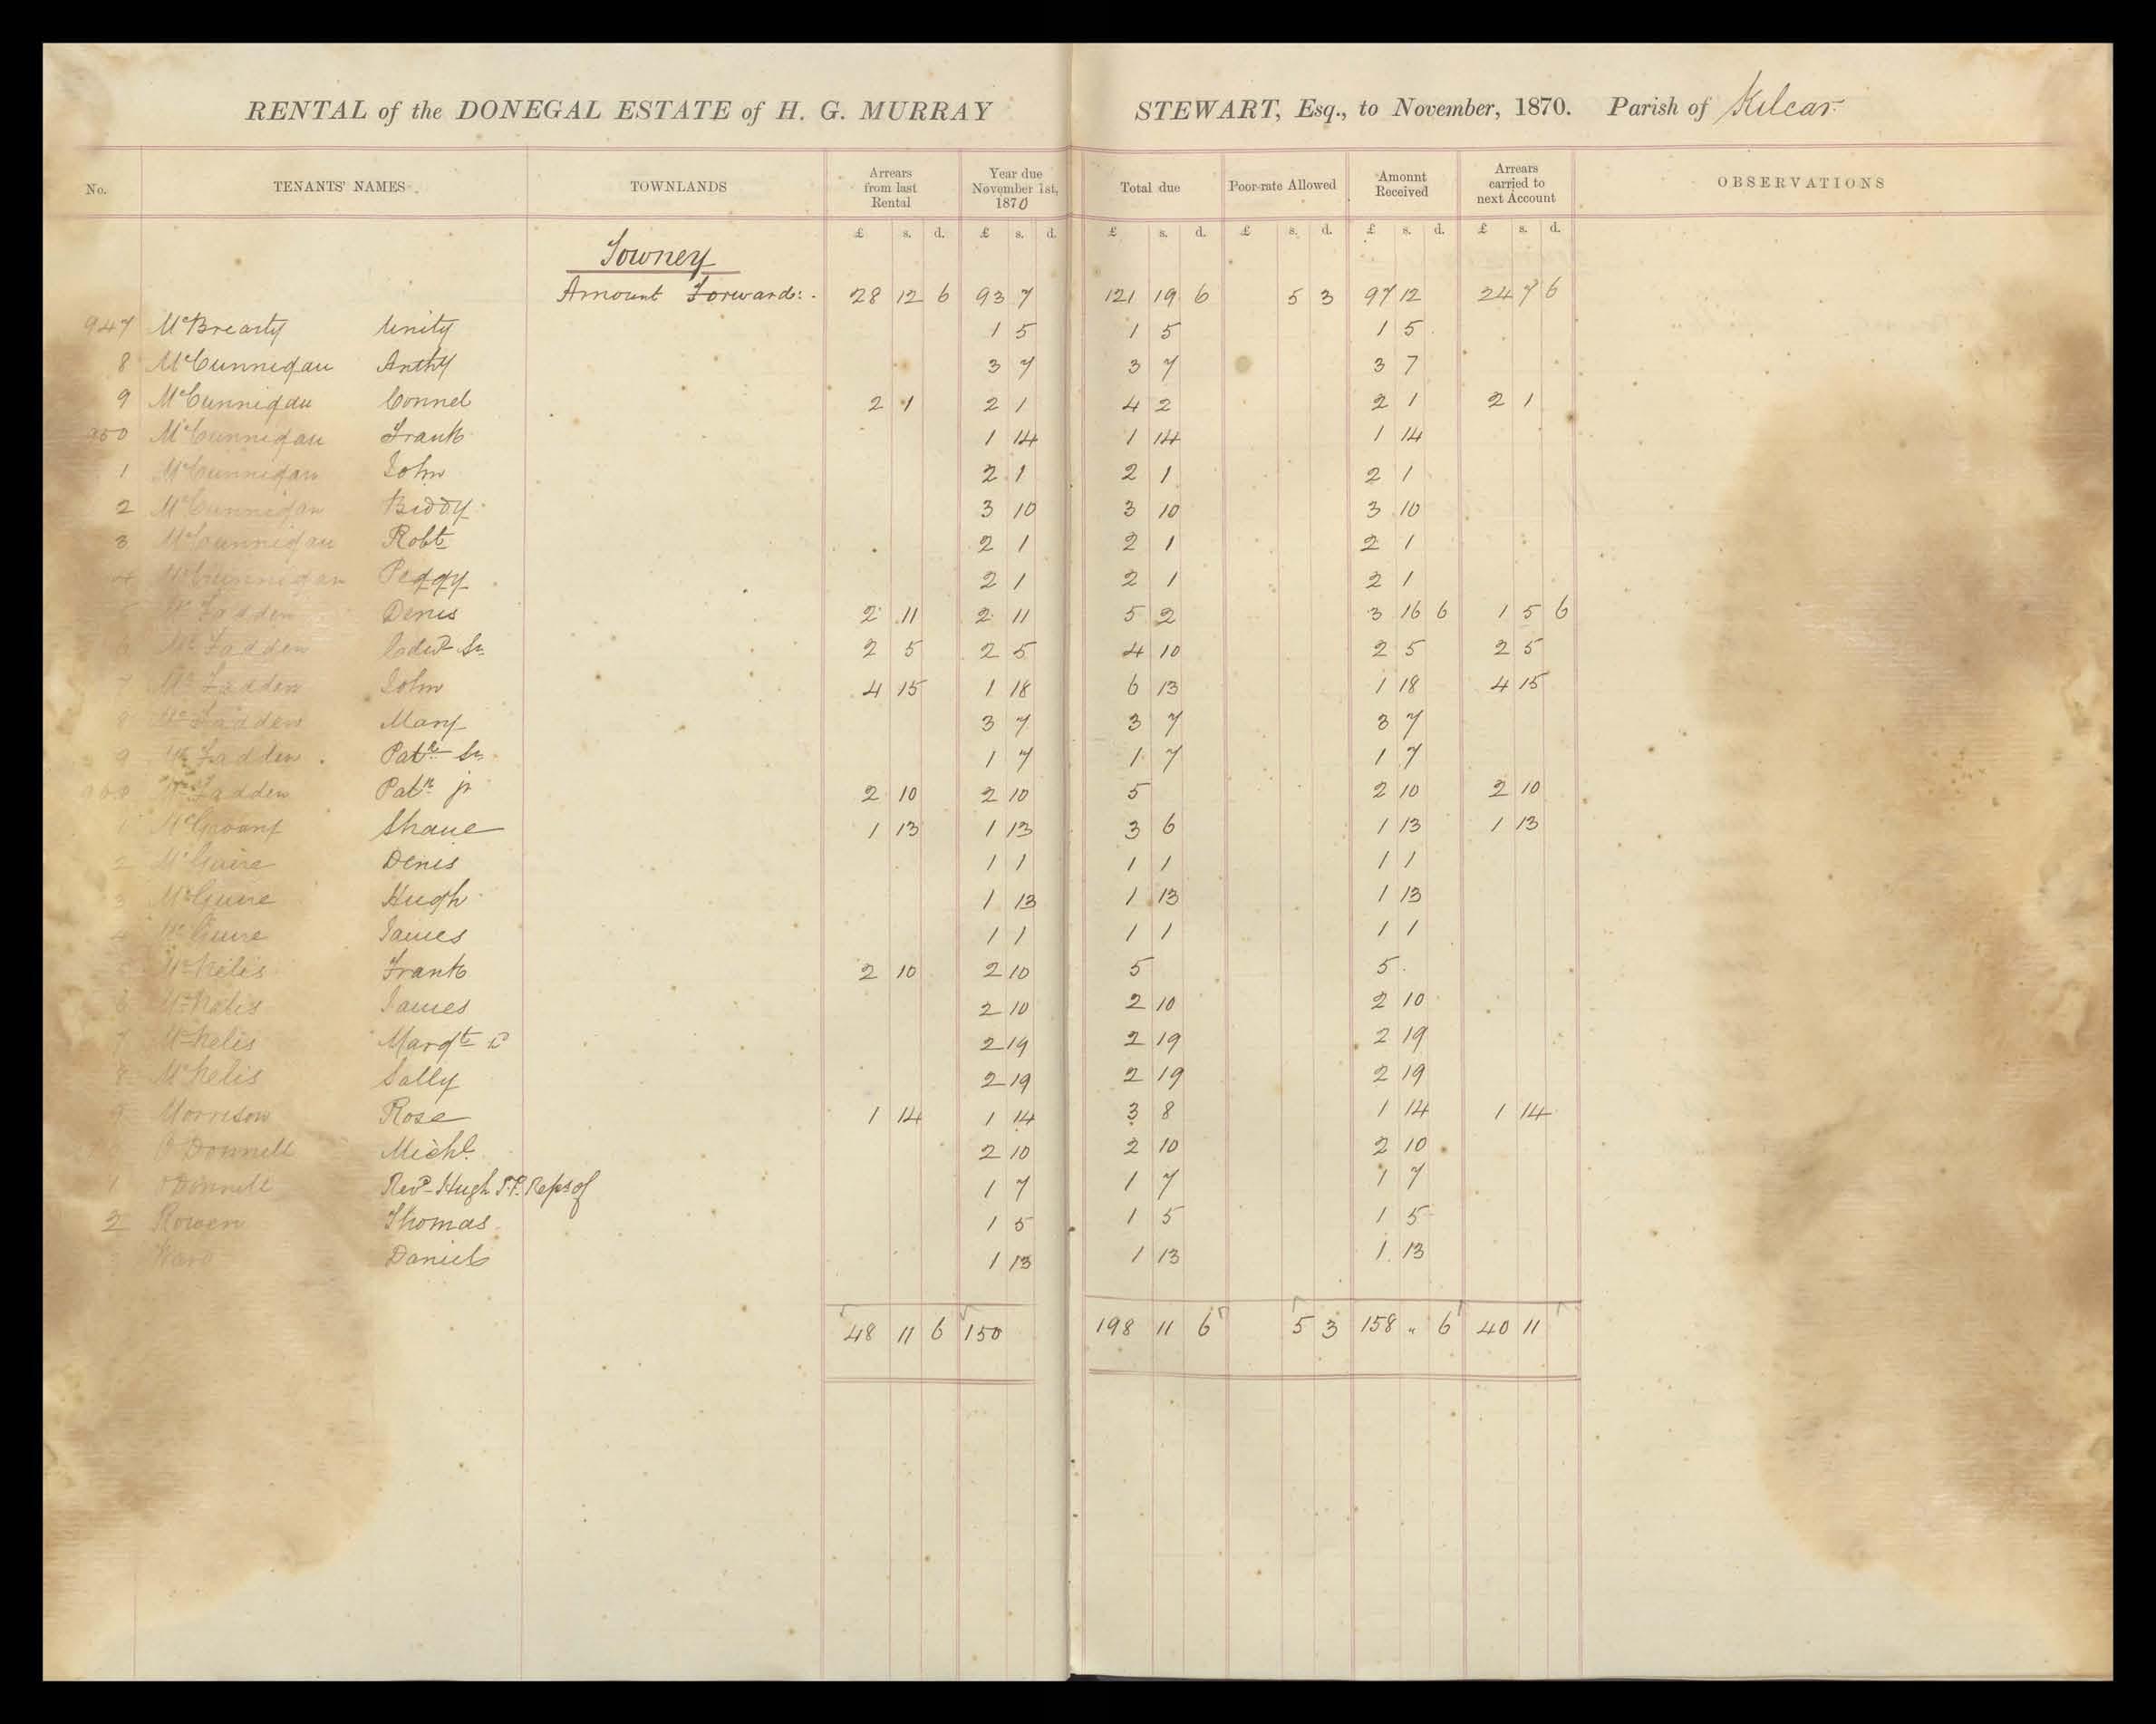 RENTAL of the DONEGAL ESTATE of H. G. MURRAY STEWART, Esq., to November, 1870. Parish of Kilcar
No. TENANTS' NAMES. TOWNLANDS Arrears from last Rental Year due November 1st, 1870 Total due Poor-rate Allowed Amonnt Received Arrears carried to next Account OBSERVATIONS
£ s. d. £ s. d. £ s. d. £ s. d. £ s. d. £ s. d.
Towney
Amount Forward: 28 12 6 93 7 121 19 6 5 3 97 12 24 7 6
947 McBrearty Unity 1 5 1 5 1 5
8 McCunnigau Anthy 3 7 3 7 3 7
9 McCunnigau Connel 2 1 2 1 4 2 2 1 2 1
950 McCunnigau Frank 1 14 1 14 1 14
1 McCunnigan John 2 1 2 1 2 1
2 McCunnigan Biddy 3 10 3 10 3 10
3 McCunnigau Robt 2 1 2 1 2 1
4 McCunnigan Peggy 2 1 2 1 2 1
McFadden Denis 2 11 2 11 5 2 3 16 6 1 5 6
6 McFadden Edwd Sr 2 5 2 5 4 10 2 5 2 5
7 McFadden John 4 15 1 18 6 13 1 18 4 15
8 McFadden Mary 3 7 3 7 3 7
9 McFadden Patk Sr 1 7 1 7 1 7
960 McFadden Patk jr 2 10 2 10 5 2 10 2 10
1 Shane 1 13 1 13 3 6 1 13 1 13
2 McGuire Denis 1 1 1 1 1 1
3 McGuire Hugh 1 13 1 13 1 13
4 McGuire James 1 1 1 1 1 1
McNelis Frank 2 10 2 10 5 5
6 McNelis James 2 10 2 10 2 10
7 McNelis Margt 2 19 2 19 2 19
8 McNelis Sally 2 19 2 19 2 19
9 Morrison Rose 1 14 1 14 3 8 1 14 1 14
O'Donnell Michl. 2 10 2 10 2 10
1 O'Donnell Revd Hugh P.P. Reps of 1 7 1 7 1 7
2 Rowen Thomas 1 5 1 5 1 5
3 Ward Daniel 1 13 1 13 1 13
48 11 6 150 198 11 6 5 3 158 " 6 40 11